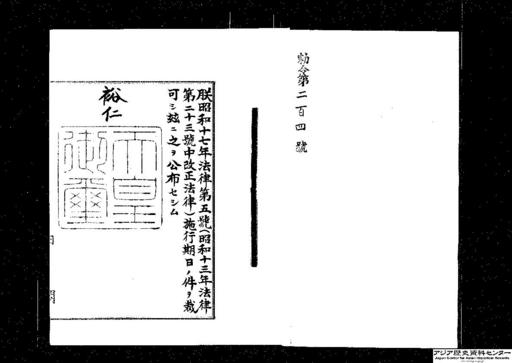 勅令第二百四號
朕昭和十七年法律第五號（昭和十三年法律
第二十三號中改正法律）施行期日ノ件ヲ裁
可シ玆ニ之ヲ公布セシム
裕仁
天皇
御璽
アジア歴史資料センター
Japan Center for Asian Historical Records